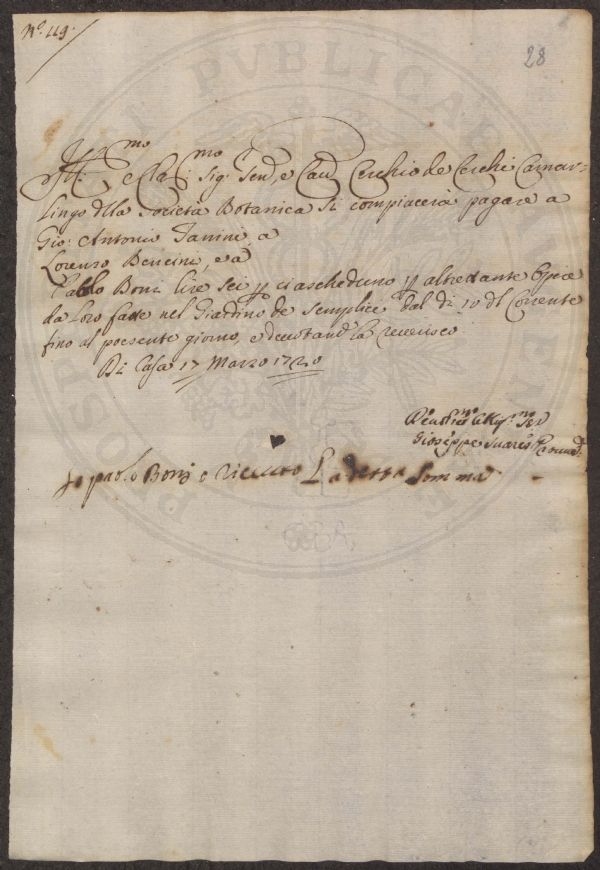 N.º 119.
28
Ill:mo e Cla:mo Sig.r Sen.e, e Cau.e Cerchio de Cerchi Camar=
lingo della Società Botanica Si compiacerà pagare a
Gio: Antonio Janini, a
Lorenzo Bencini, e a
Pablo Boni lire sei p ciascheduno p altrettante Opere
da Loro fatte nel Giardino de Semplici dal dì 10 dl Corrente
fino al presente giorno, e la reverisco
Di Casa 17 Marzo 1720
Giuseppe Suares
Io paolo Boni o riceuto La detta Somma